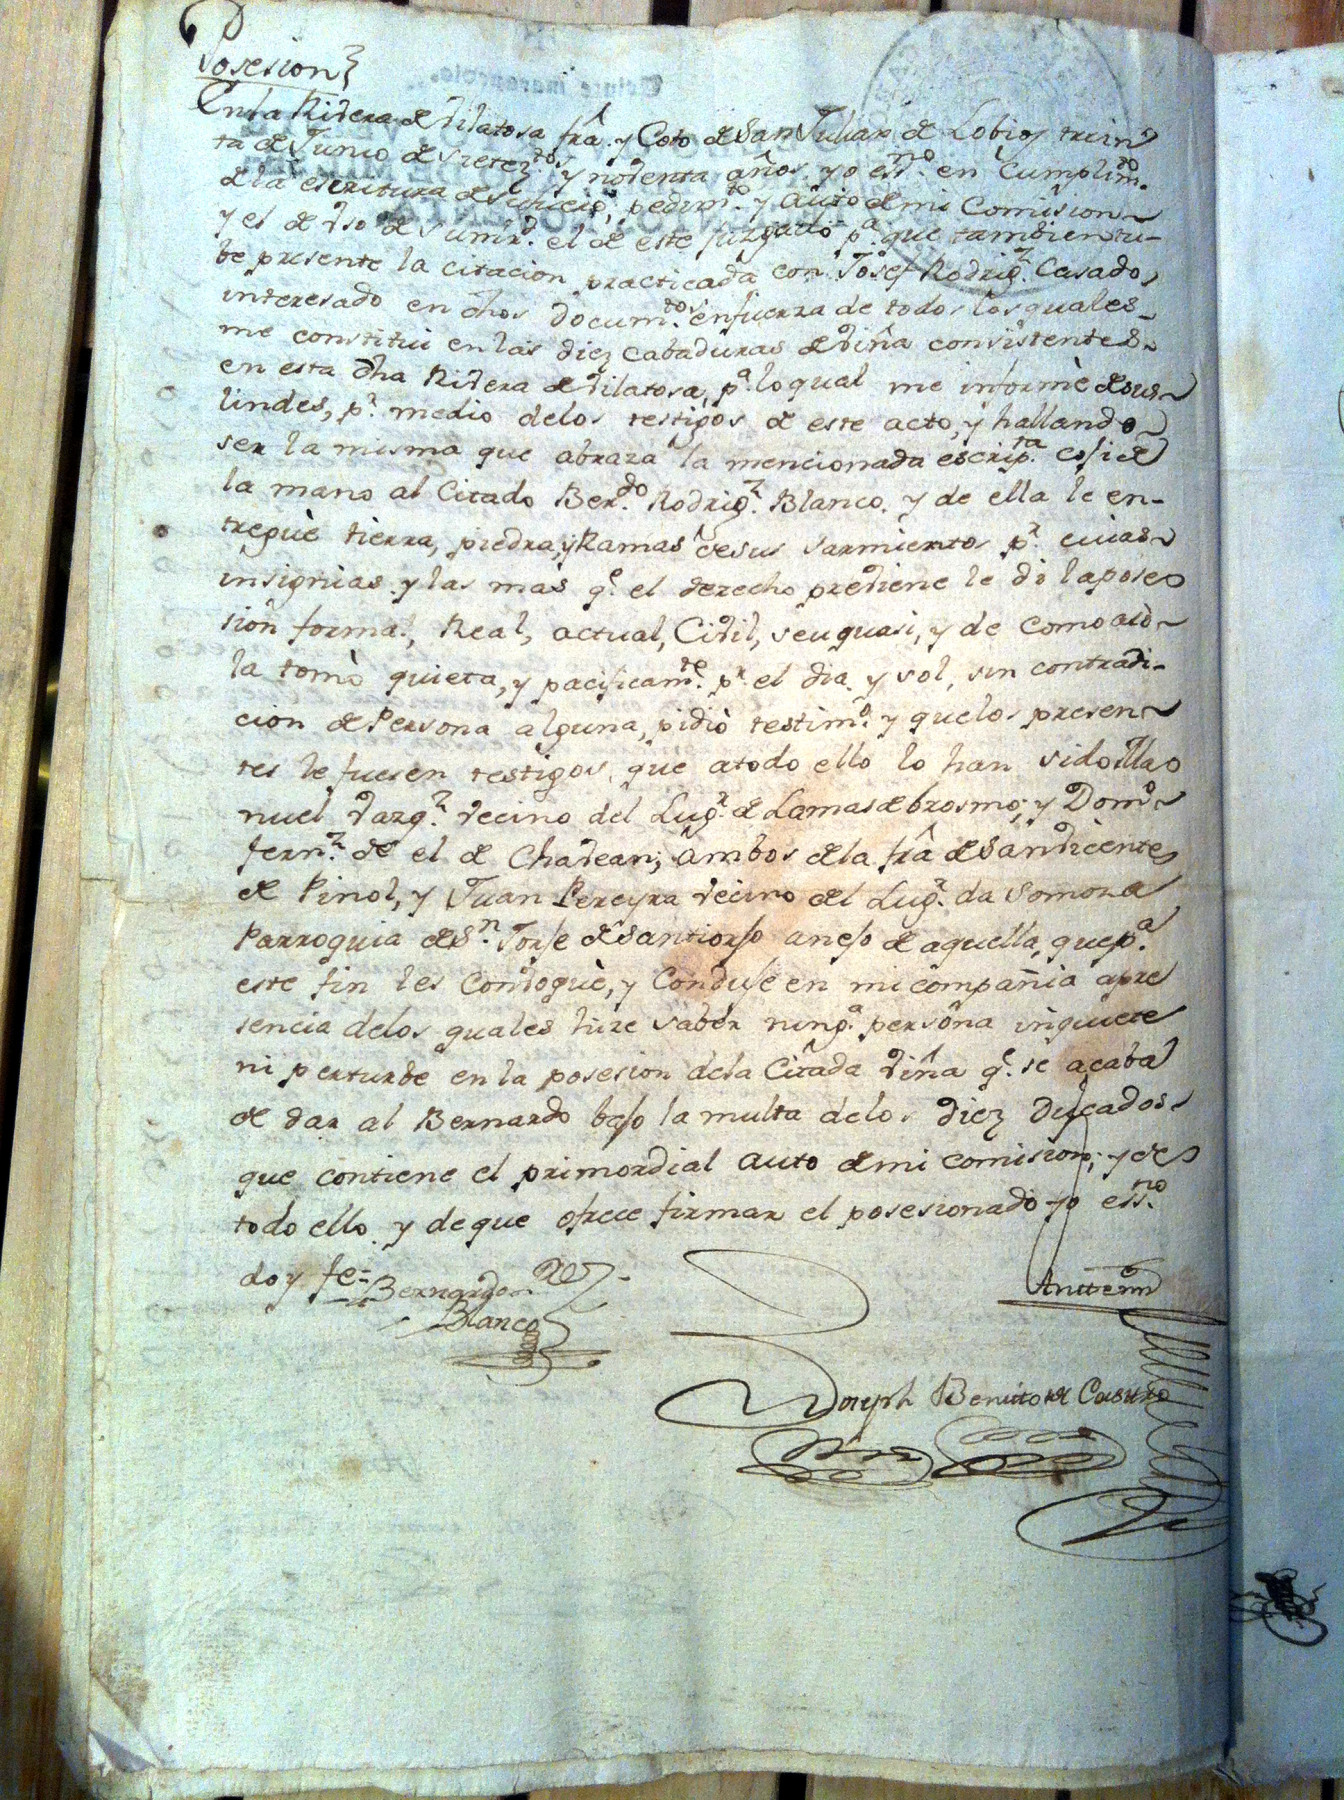 Posesion
En la Rivera de Vilatosa frâ. y Coto de San Julian de Lobios trein
ta de Junio de setez.tos y noventa años. yo ess.no en Cumplim.to
de la escritura de pedim.to y Auto de mi Comision
y el de Uso de Cumtº. el de este juzgado p.a que tambien tu-
be presente la citacion practicada con Josef Rodrig.z Casado
interesado en dhos docum.tos enfuerza de todos los quales
me constitui en las diez cabaduras de viña consistentes
en esta dha Rivera de Vilatosa, p.a loqual me informè de sus
lindes, p.r medio delos testigos de este acto, y hallando
ser la misma que abraza la mencionada escrip.ra cojì de
la mano al Citado Ber.do Rodrig.z Blanco. y de ella le en-
treguè tierra, piedra, y Ramas de sus sarmientos p.r cuias
insignias y las mas q.e el derecho previene le di la pose
sion formal, Real, actual, Civil, seuquasi, y de como asì
la tomò quieta, y pacificam.te p.r el dia y sol, sin contradi-
cion de Persona alguna, pidiò testim.o y quelos presen
tes le fuesen testigos, que atodo ello lo han sido Ma
nuel Vazq.z vecino del Lug.r de Lamas de brosmo; y Dom.o
fern.z de el de Chavean; ambos de la frâ de San Vicente
de Pinol, y Juan Pereyra vecino del Lug.r da Somoza
Parroquia de S.n Jorje de Santiorjo anejo de aquella, que p.a
este fin les Convoquè, y Conduje en mi compañia apre
sencia delos quales hize saber ning.a persona inquiete
ni perturbe en la posesion dela Citada viña q.e se acaba
de dar al Bernardo bajo la multa delos diez ducados
que contiene el primordial auto de mi comision; y de
todo ello y de que ofrece firmar el posesionado yo ess.no
doy fe=
Bernardo Rz
Blanco
Anttemi
Joseph Benitto de Castro